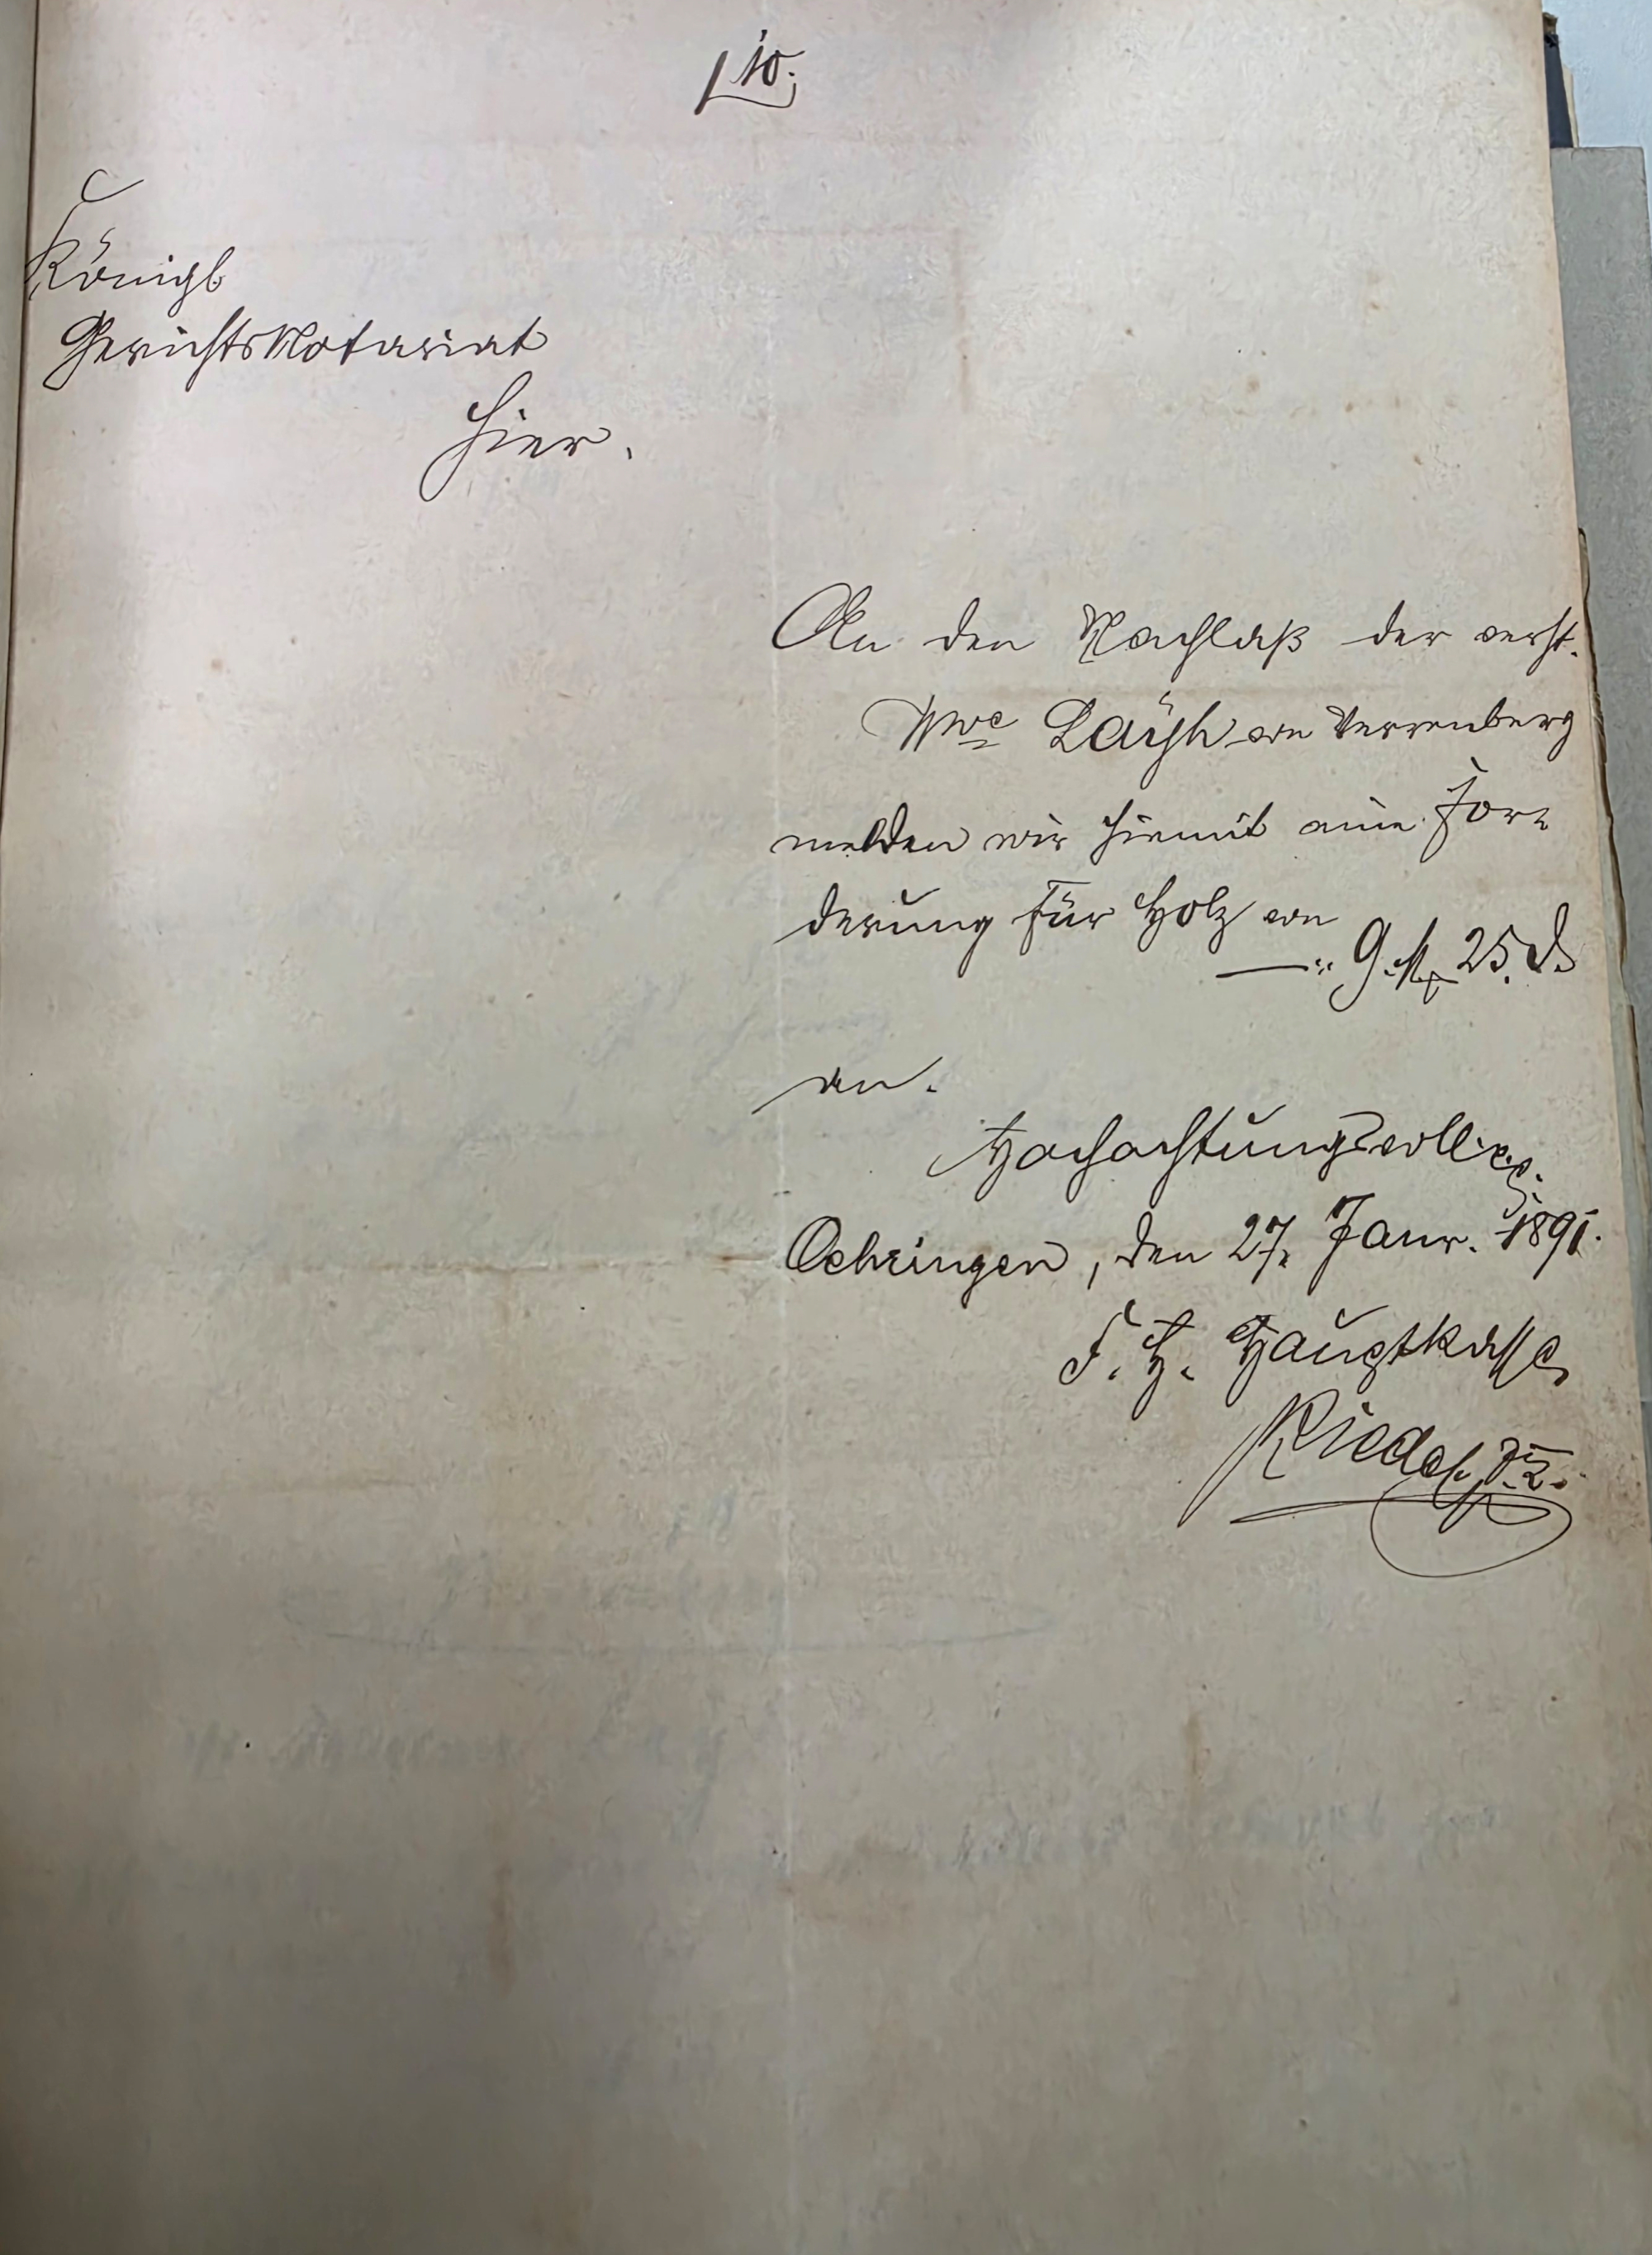 10.
Königl
GerichtsNotariat
hier.
An den Nachlaß der verst.
Wwe Layh von Verrenberg
melden wir hiemit eine For-
derung für Holz von
—.. 9. M 25. d.
an.
Hochachtungsvollst
Oehringen, den 27. Janr. 1891.
F. H. Hauptkasse